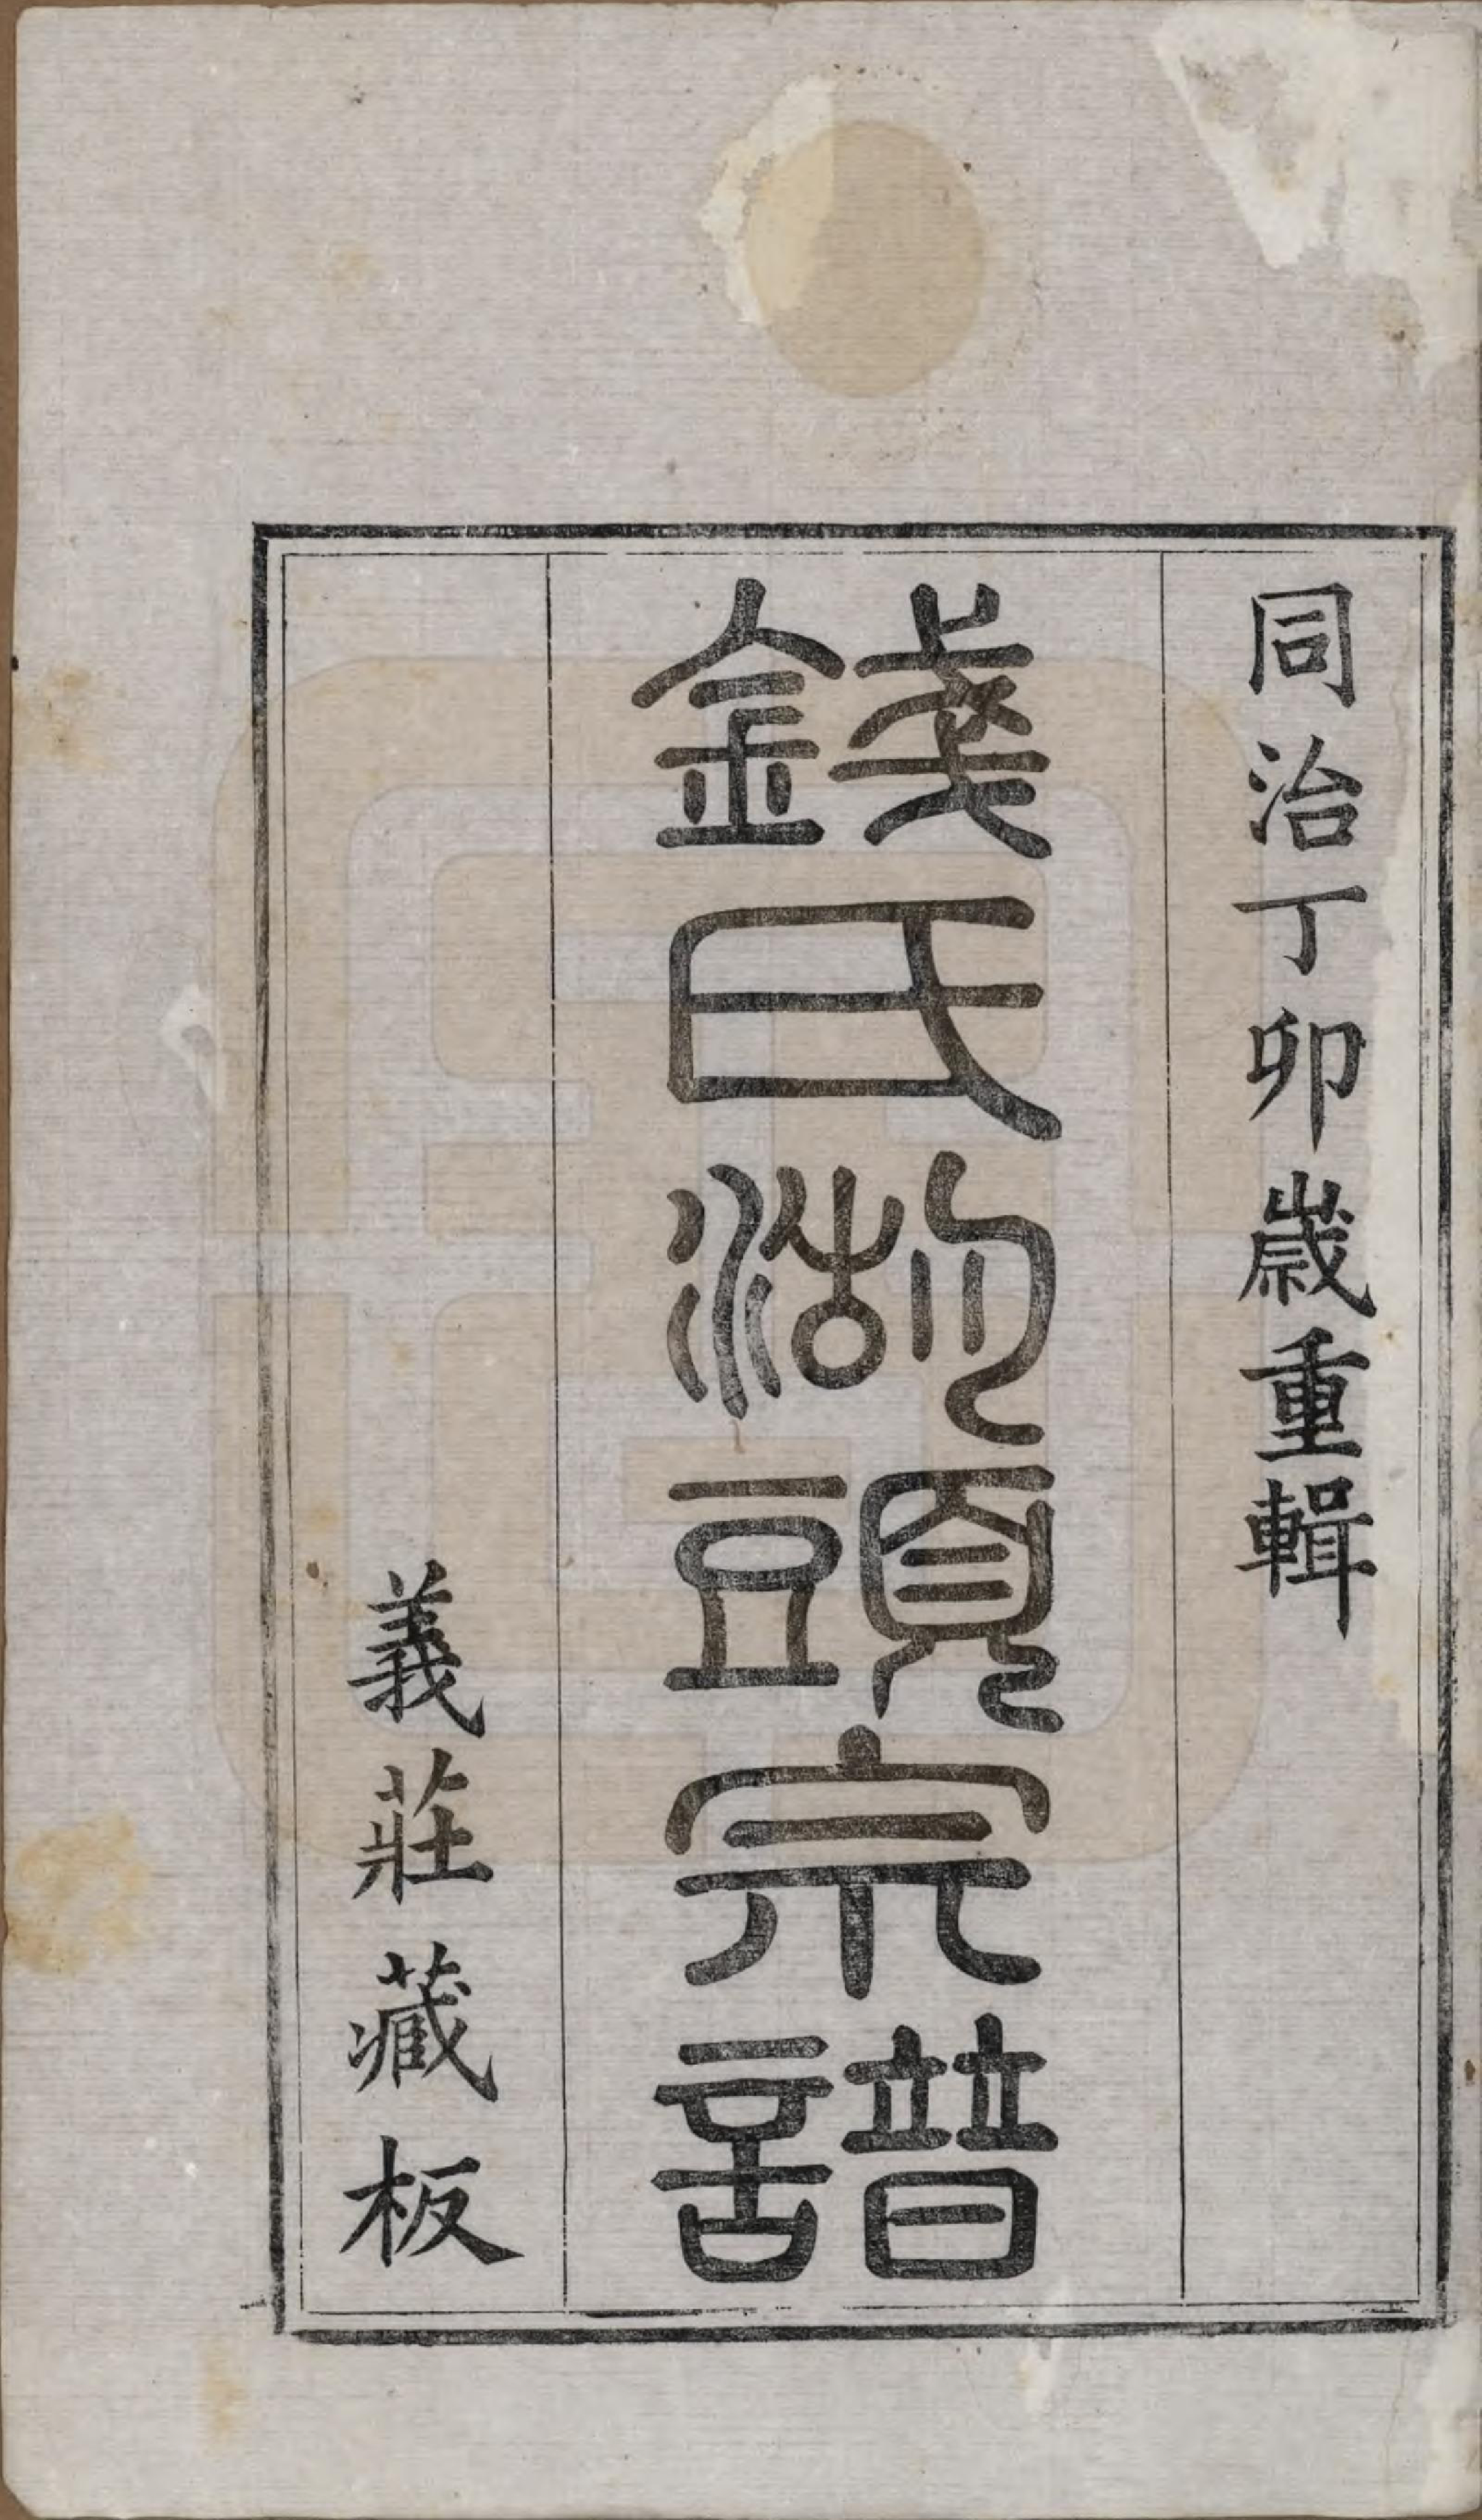 同治丁卯歲重輯
錢氏湖頭宗譜
義莊藏板